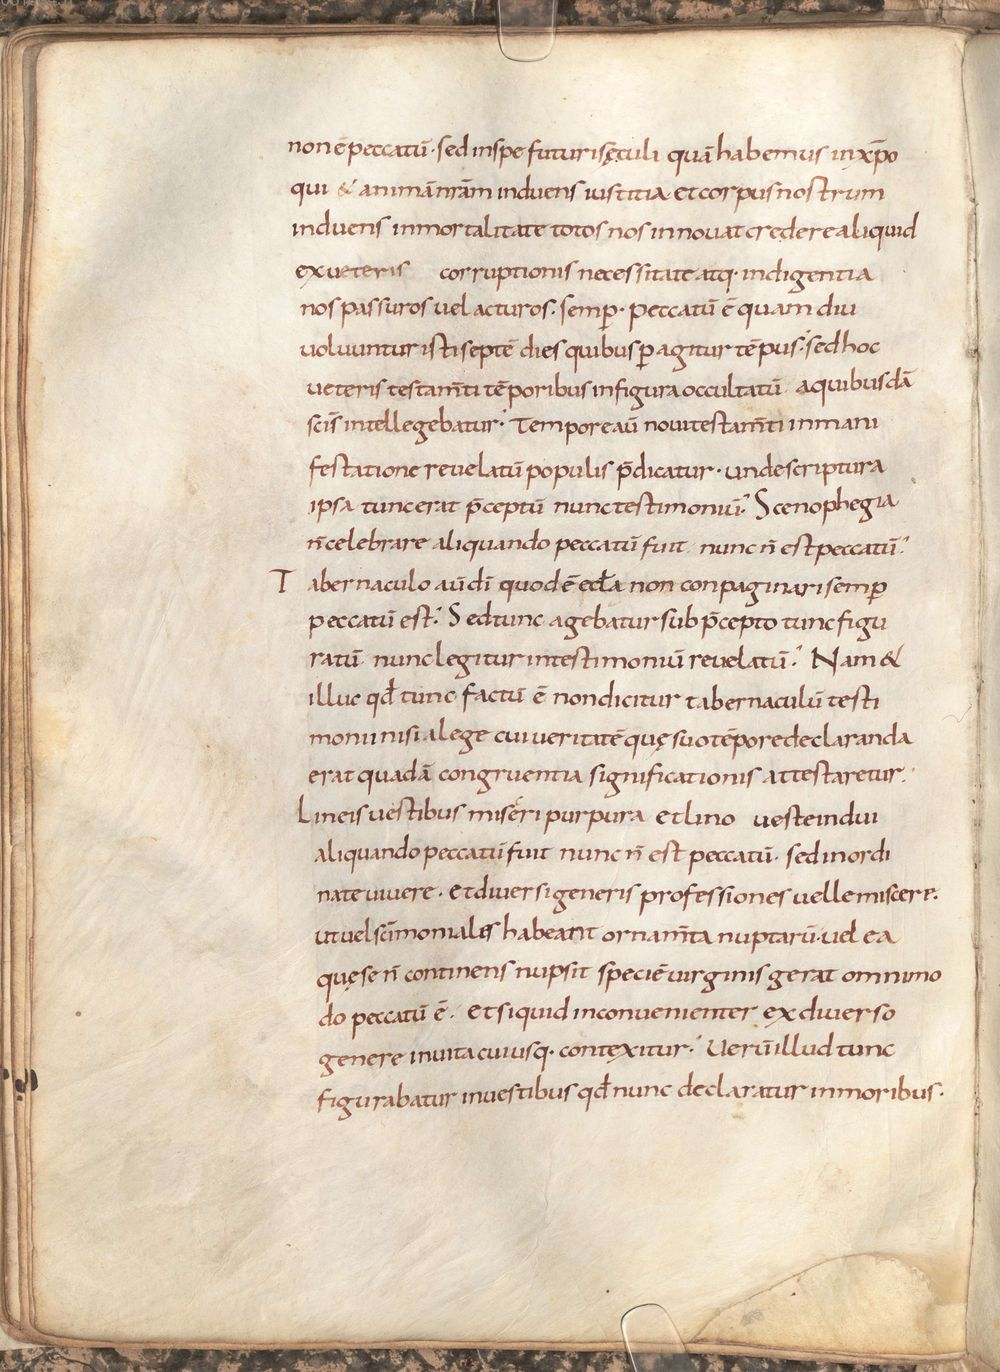 non ē peccatū · sed in spe futuri sęculi quā habemus in xp̄o
qui & animā nr̄am induens iustitia · et corpus nostrum
induens inmortalitate totos nos innouat credere aliquid
ex ueteris corruptionis necessitate atq· indigentia
nos passuros uel acturos · semp̄ · peccatū ē quam diu
uoluuntur isti septē dies quibus p̄agitur tēpus · sed hoc
ueteris testam̄ti tēporibus in figura occultatū a quibusdā
sc̄is intellegebatur · Tempore aū noui testam̄ti in mani
festatione reuelatū populis p̄dicatur · unde scriptura
ipsa tunc erat p̄ceptū nunc testimoniū · Scenophegia
n̄ celebrare aliquando peccatū fuit nunc n̄ est peccatū ·
Tabernaculo aū dī quod ē eccła non conpaginari semp̄
peccatū est · Sed tunc agebatur sub p̄cepto tunc figu
ratū nunc legitur in testimoniū reuelatū · Nam &
illuc qđ tunc factū ē non dicitur tabernaculū testi
monii nisi a lege cui ueritatē quę suo tēpore declaranda
erat quadā congruentia significationis attestaretur ·
Lineis uestibus miseri purpura et lino ueste indui
aliquando peccatū fuit nunc n̄ est peccatū · sed inordi
nate uiuere · et diuersi generis professiones uelle miscere ·
ut uel sc̄imonialis habeant ornam̄ta nuptarū · uel ea
quę se n̄ continens nupsit speciē uirginis gerat omnimo
do peccatū ē · et si quid inconuenienter ex diuerso
genere in uita cuiusq· contexitur · Uerū illud tunc
figurabatur in uestibus qđ nunc declaratur in moribus ·